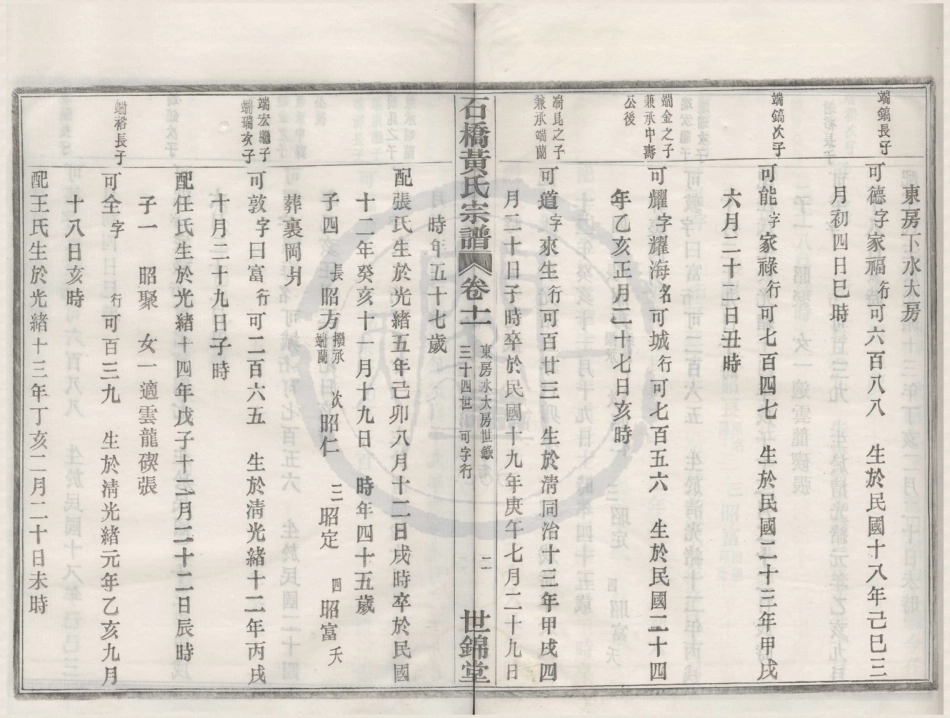 東房下水大房
端鎬長子
可德字家福行可六百八八 生於民國十八年己巳三
月初四日巳時
端鎬次子
可能字家祿行可七百四七 生於民國二十三年甲戌
六月二十二日丑時
端金之子
兼承中壽
公後
可耀字耀海名可城行可七百五六 生於民國二十四
年乙亥正月二十七日亥時
端昆之子
兼承端蘭
可道字來生行可百廿三 生於清同治十三年甲戌四
月二十日子時卒於民國十九年庚午七月二十九日
石橋黃氏宗譜 卷十一 東房水大房世錄
三十四世 可字行 二 世錦堂
時年五十七歲
配張氏生於光緒五年己卯八月十二日戌時卒於民國
十二年癸亥十一月十九日 時年四十五歲
子四 長昭方撥承端蘭 次昭仁 三昭定 四昭富夭
葬裏岡爿
端宏繼子
端瑞次子
可敦字曰富行可二百六五 生於清光緒十二年丙戌
十月二十九日子時
配任氏生於光緒十四年戊子十二月二十二日辰時
子一 昭聚 女一適雲龍碶張
端裕長子
可全字 行可百三九 生於清光緒元年乙亥九月
十八日亥時
配王氏生於光緒十三年丁亥二月二十日未時